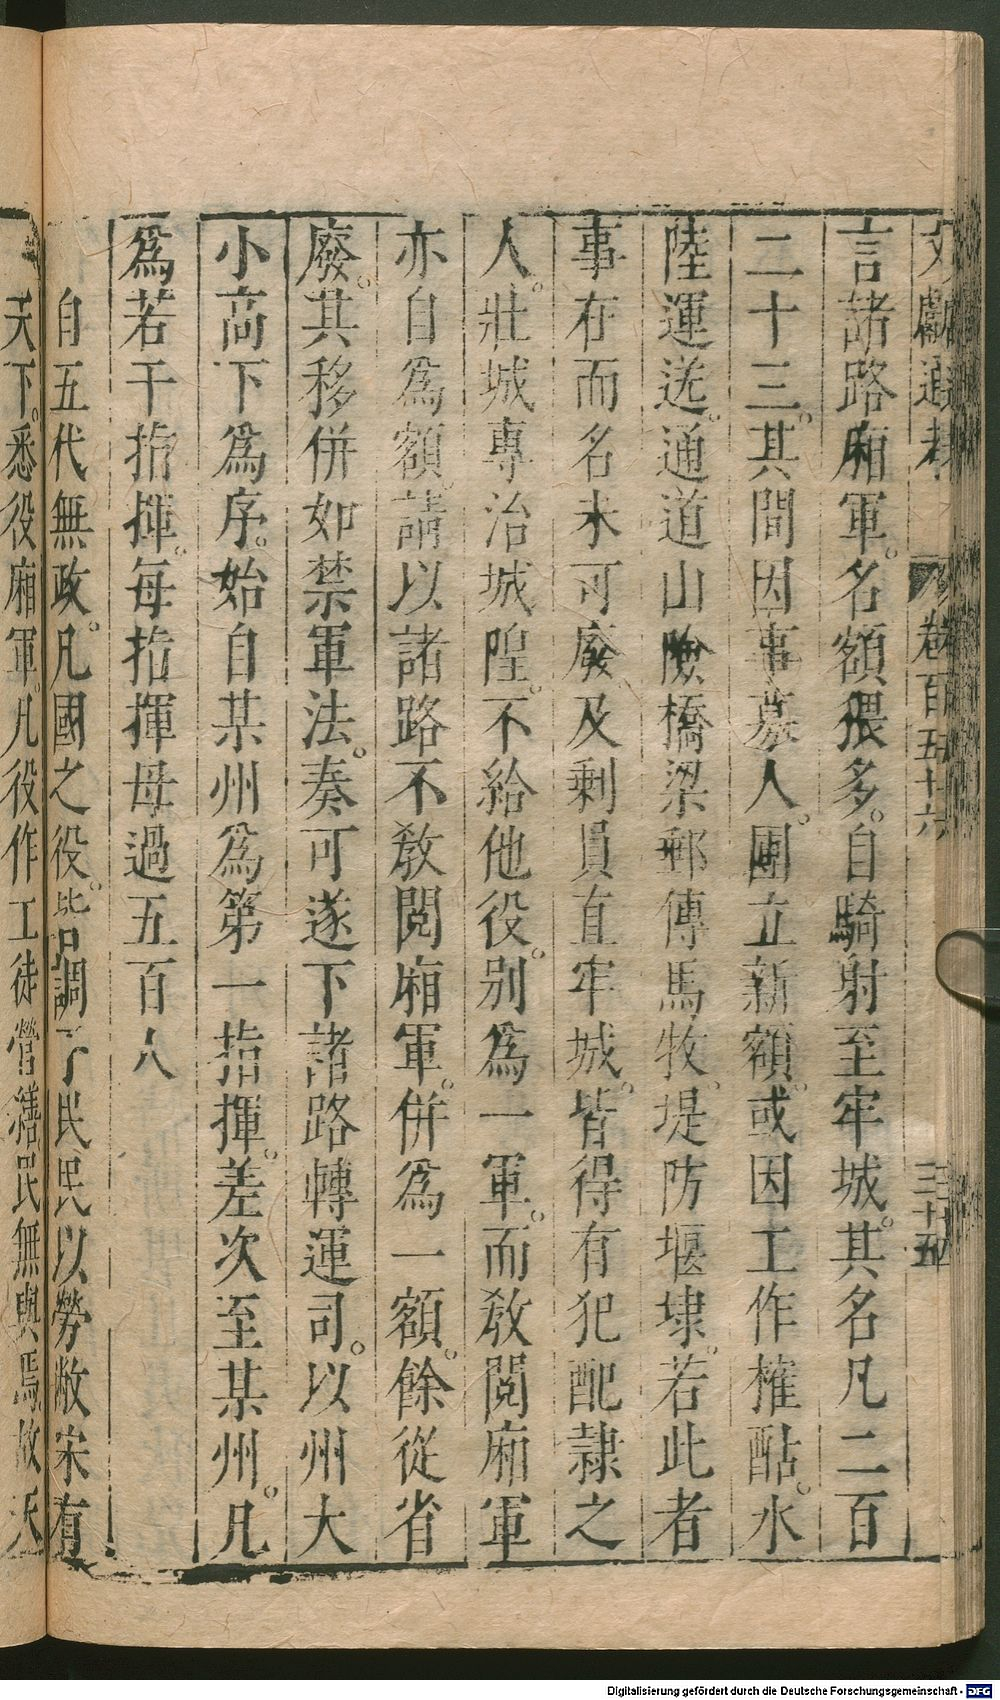 文獻通考 卷百五十六 三十五
言諸路廂軍。名額猥多。自騎射至牢城。其名凡二百
二十三。其間因事募人。團立新額。或因工作榷酤。水
陸運送。通道山險橋梁郵傳馬牧。堤防堰埭。若此者
事在而名未可廢及剩員直牢城。皆得有犯配隷之
人。壯城專治城隍。不給他役。别爲一軍。而敎閱廂軍
亦自爲額。請以諸路不敎閱廂軍。併爲一額。餘從省
廢。其移併如禁軍法。奏可遂下諸路轉運司。以州大
小高下爲序。始自某州爲第一指揮。差次至某州。凡
爲若干指揮。每指揮毋過五百人
自五代無政。凡國之役。皆調于民民以勞敝宋有
天下。悉役廂軍。凡役作工徒營繕。民無與焉。故天
Digitalisierung gefördert durch die Deutsche Forschungsgemeinschaft - DFG